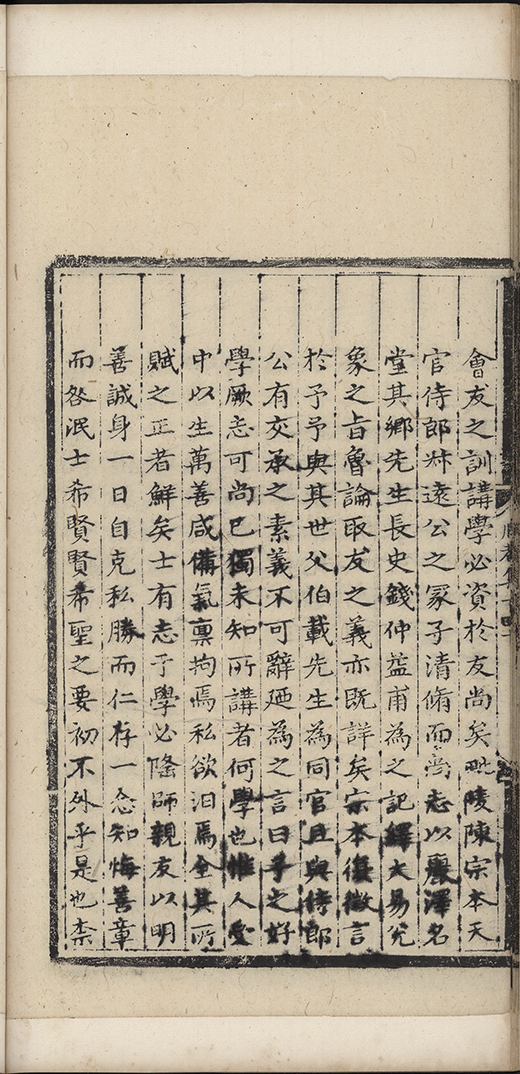 會友之訓講學必資於友尚矣毗陵陳宗本天
官侍郎叔遠公之冢子清脩而尚志以麗澤名
堂其鄉先生長史錢仲益甫為之記繹大易兊
象之旨魯論取友之義亦既詳矣宗本復徵言
於予予與其世父伯載先生為同官且與侍郎
公有交承之素義不可辭廼為之言曰乎之好
學厥志可尚已獨未知所講者何學也惟人受
中以生萬善咸備氣禀拘焉私欲汩焉全其所
賦之正者鮮矣士有志于學必隆師親友以明
善誠身一日自克私勝而仁存一念知悔善章
而咎泯士希賢賢希聖之要初不外乎是也柰